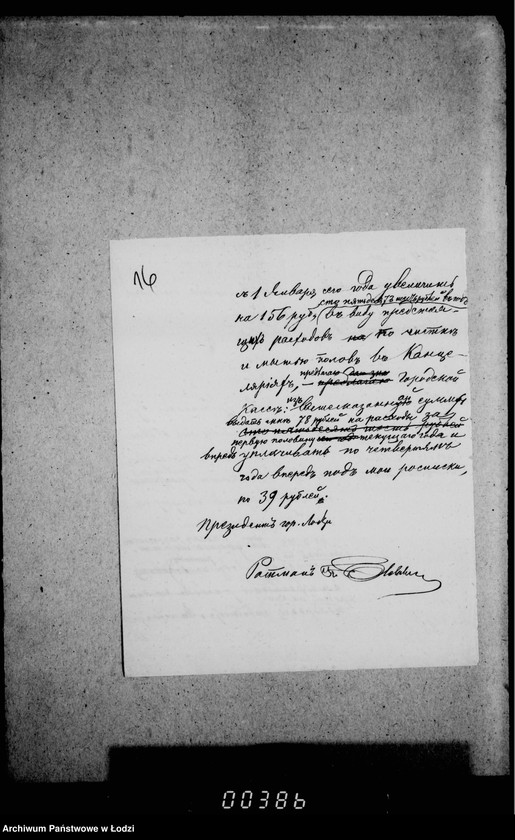 16
съ 1 Января сего года увеличить
сто пятьдесятъ шесть рублей въ годъ
на 156 руб, въ виду предстоя-
щихъ расходовъ на по чистке
и мытью половъ въ Канце-
ляріяхъ, – предлагаю Городской
Кассѣ: изъ вышесказанной суммы
выдать мнѣ 78 рублей на расходы за
сто пятьдесятъ шесть рублей
первую половину текущаго года и
впредь уплачивать по четвертямъ
года впередъ подъ мои росписки,
по 39 рублей.
Президентъ гор. Лодзи
Ратманъ
00386
Archiwum Państwowe w Łodzi